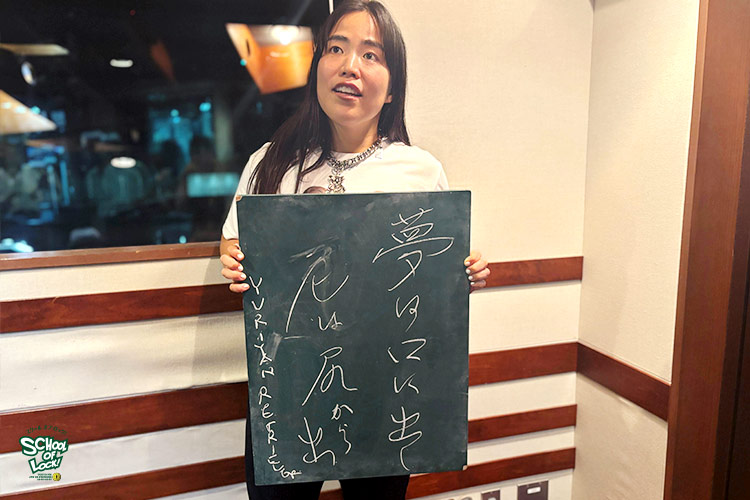 夢は口に出
屁は尻から出
YURIYAN RETRIEVER
SCHOOL
OF
LOCK!